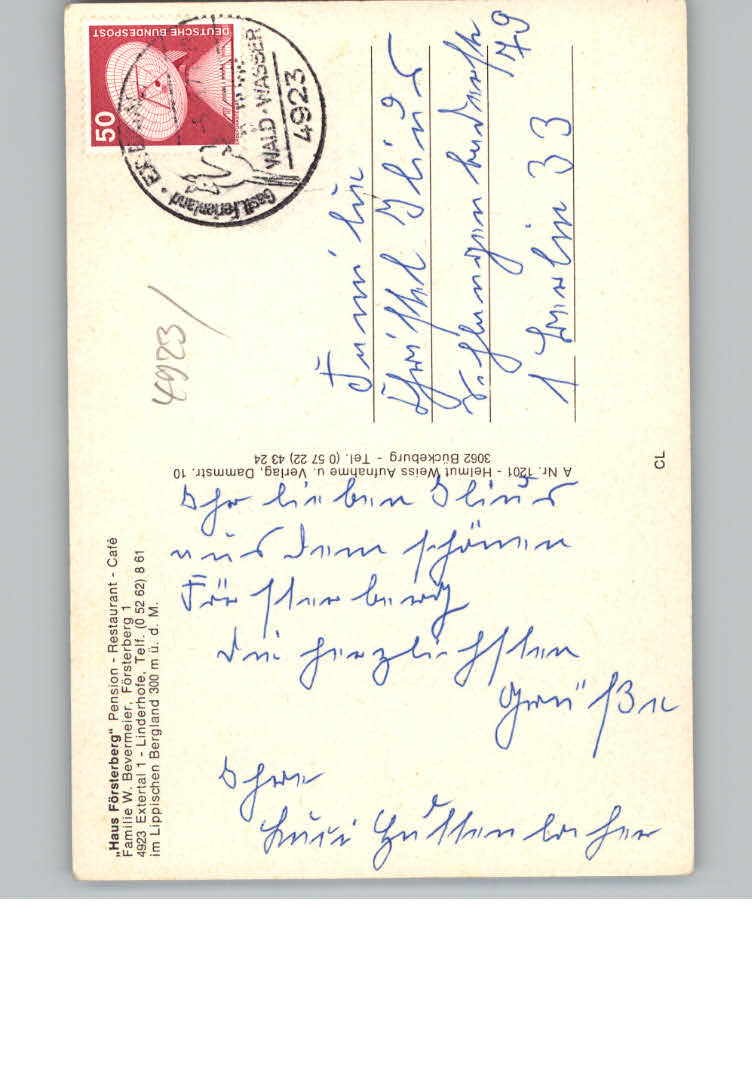 „Haus Försterberg“ Pension - Restaurant - Café
Familie W. Bevermeier, Försterberg 1
4923 Extertal 1 - Linderhofe, Telf. (0 52 62) 8 61
im Lippischen Bergland 300 m ü. d. M.
Ihr lieben
aus dem schönen
Försterberg
die herzlichsten
Grüße
Ihre
A Nr. 1201 - Helmut Weiss Aufnahme u. Verlag, Dammstr. 10
3062 Bückeburg - Tel. (0 57 22) 43 24
4923/
DEUTSCHE BUNDESPOST
50
WALD · WASSER
4923
Gastl. Ferienland
Familie
79
1 Berlin 33
CL